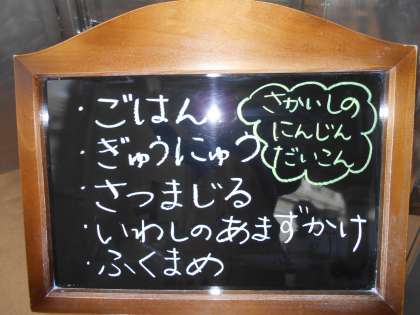 ・ごはん
・ぎゅうにゅう
・さつまじる
・いわしのあまずかけ
・ふくまめ
さかいしの
にんじん
だいこん